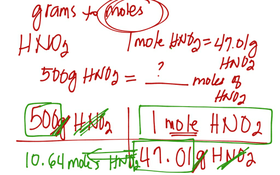 grams to moles
HNO2 1 mole HNO2 = 47.01g HNO2
500g HNO2 = ? moles of HNO2
500g HNO2 1 mole HNO2
10.64 moles HNO2 47.01g HNO2